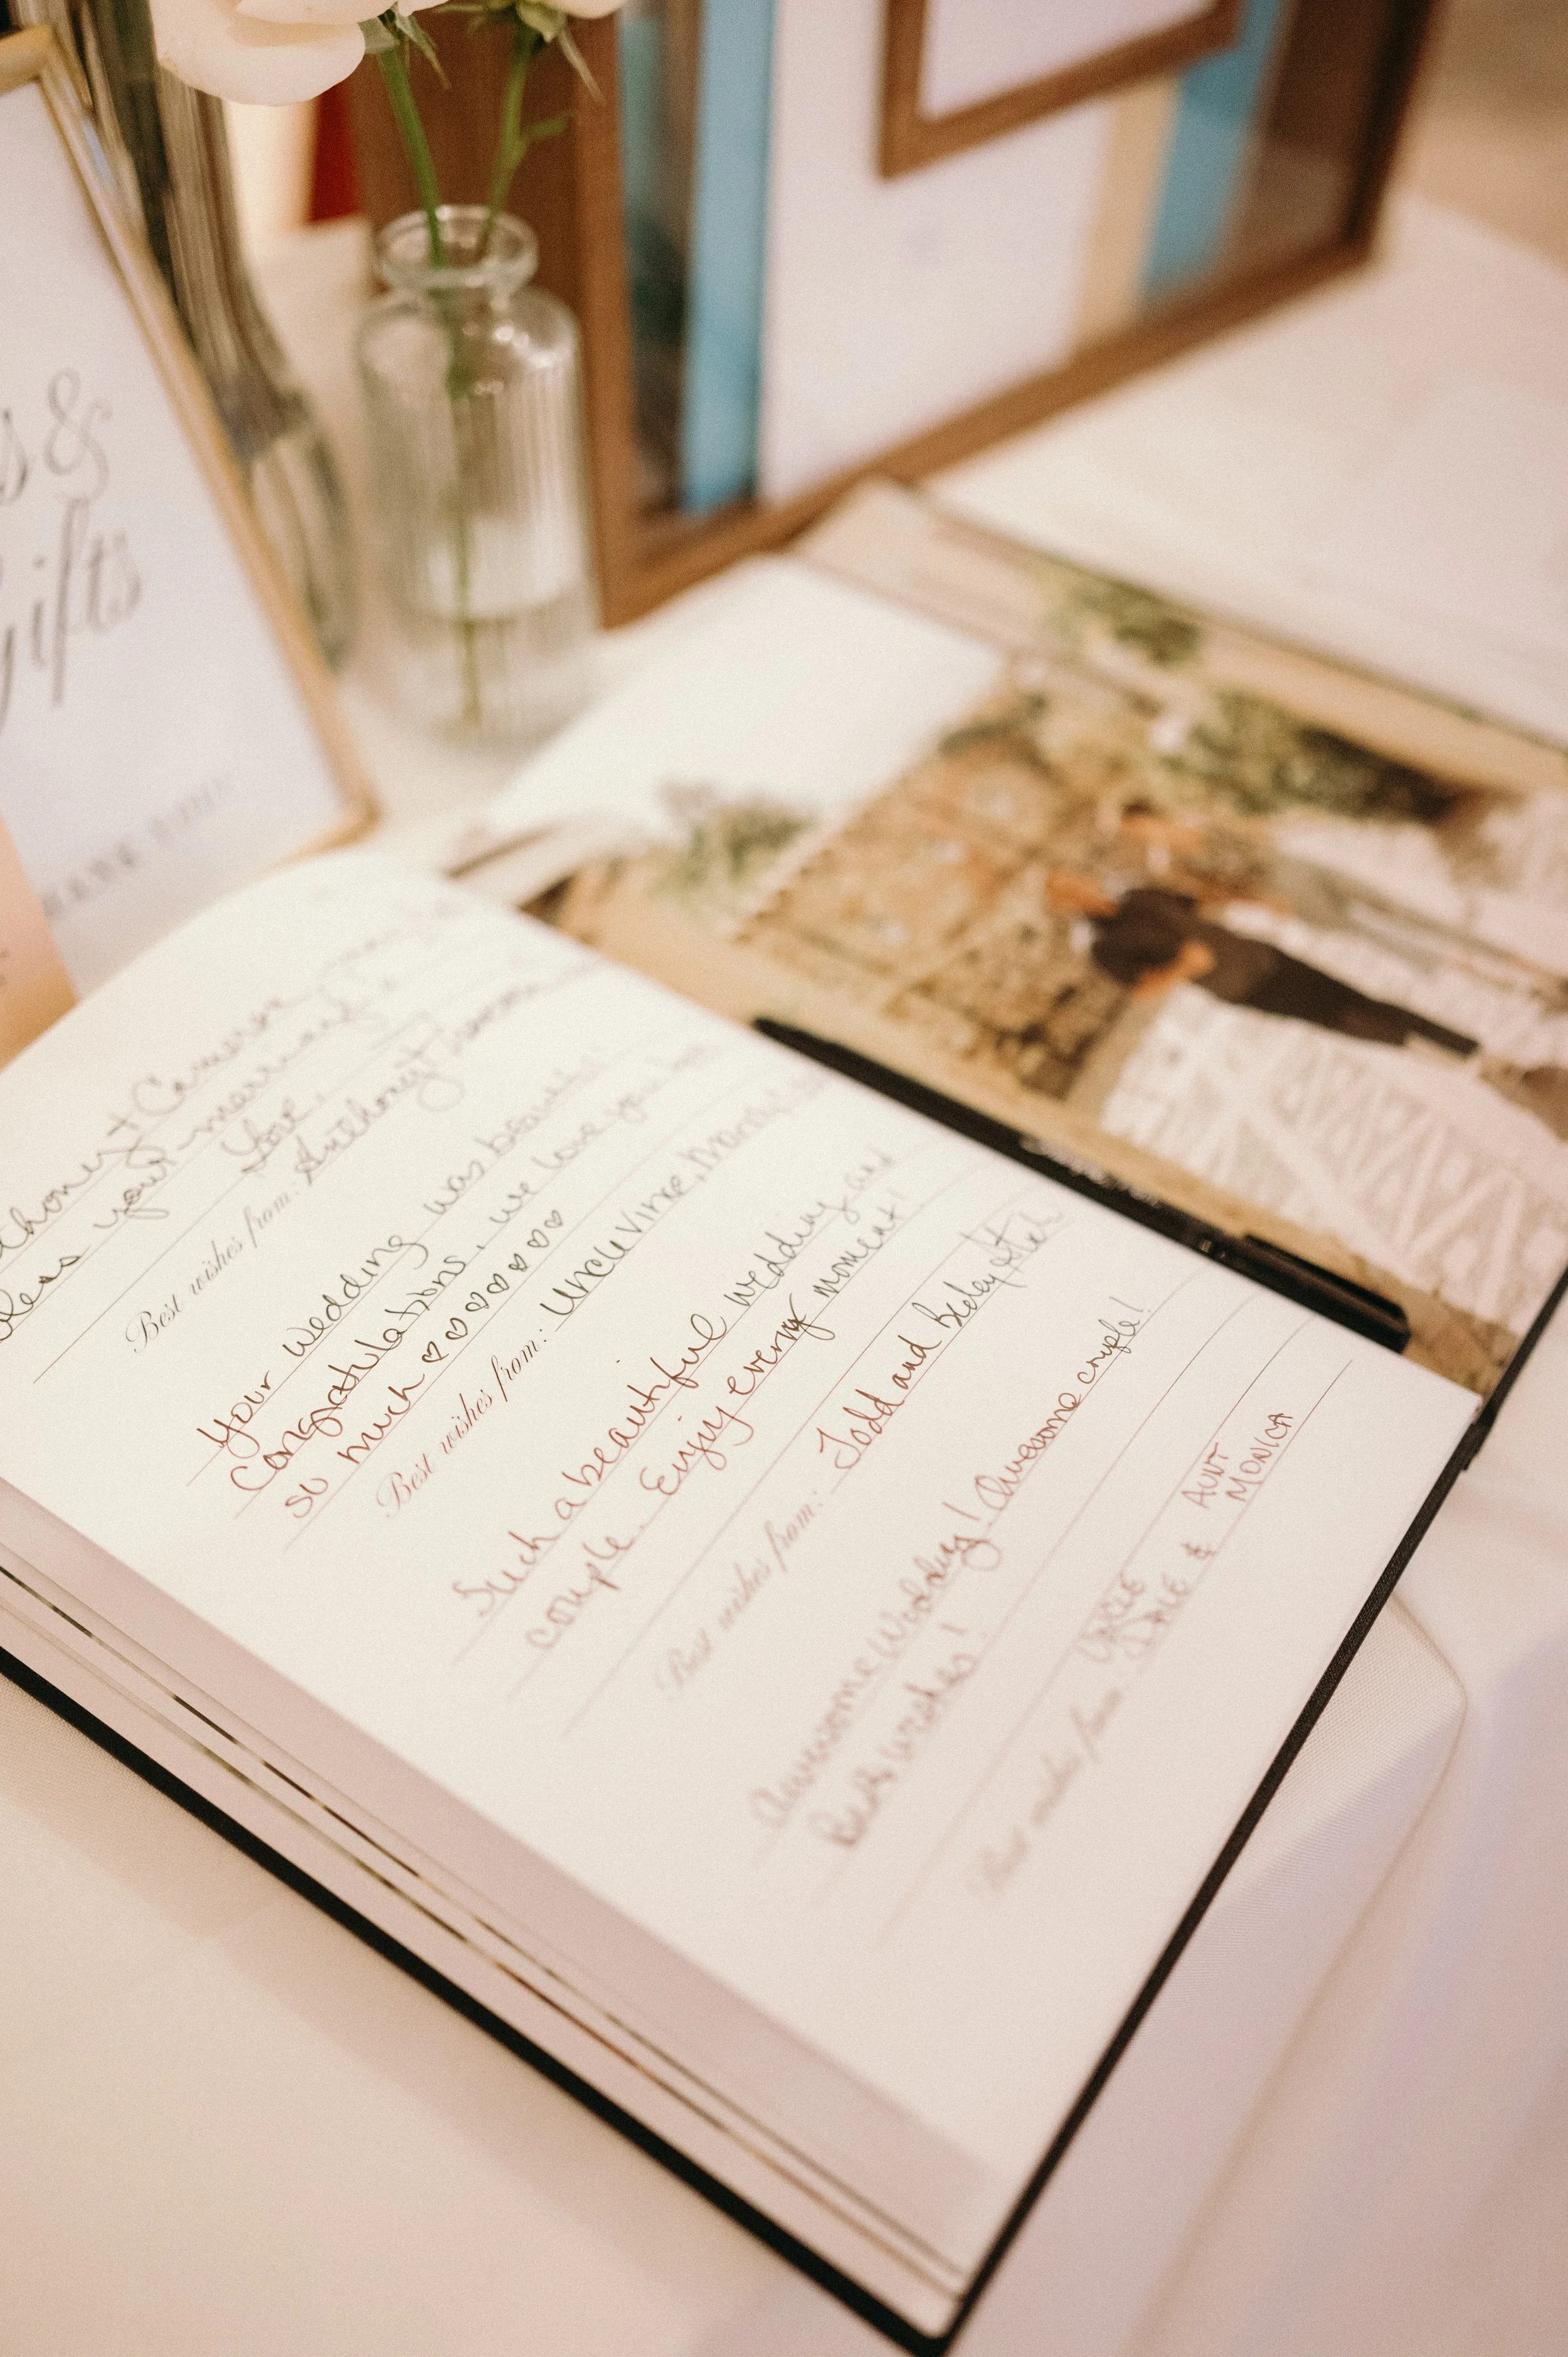 s &
gifts
THANK YOU!
Anthony + Cameron
bless your marriage
Love,
Best wishes from: Anthony
Your wedding was beautiful
Congratulations, we love you
so much ♡♡♡♡♡♡♡
Best wishes from: Uncle Vince,
Such a beautiful wedding and
couple. Enjoy every moment!
Best wishes from: Todd and
Awesome Wedding! Awesome couple!
Best wishes!
AUNT
UNCLE & MONICA
Best wishes from: DALE